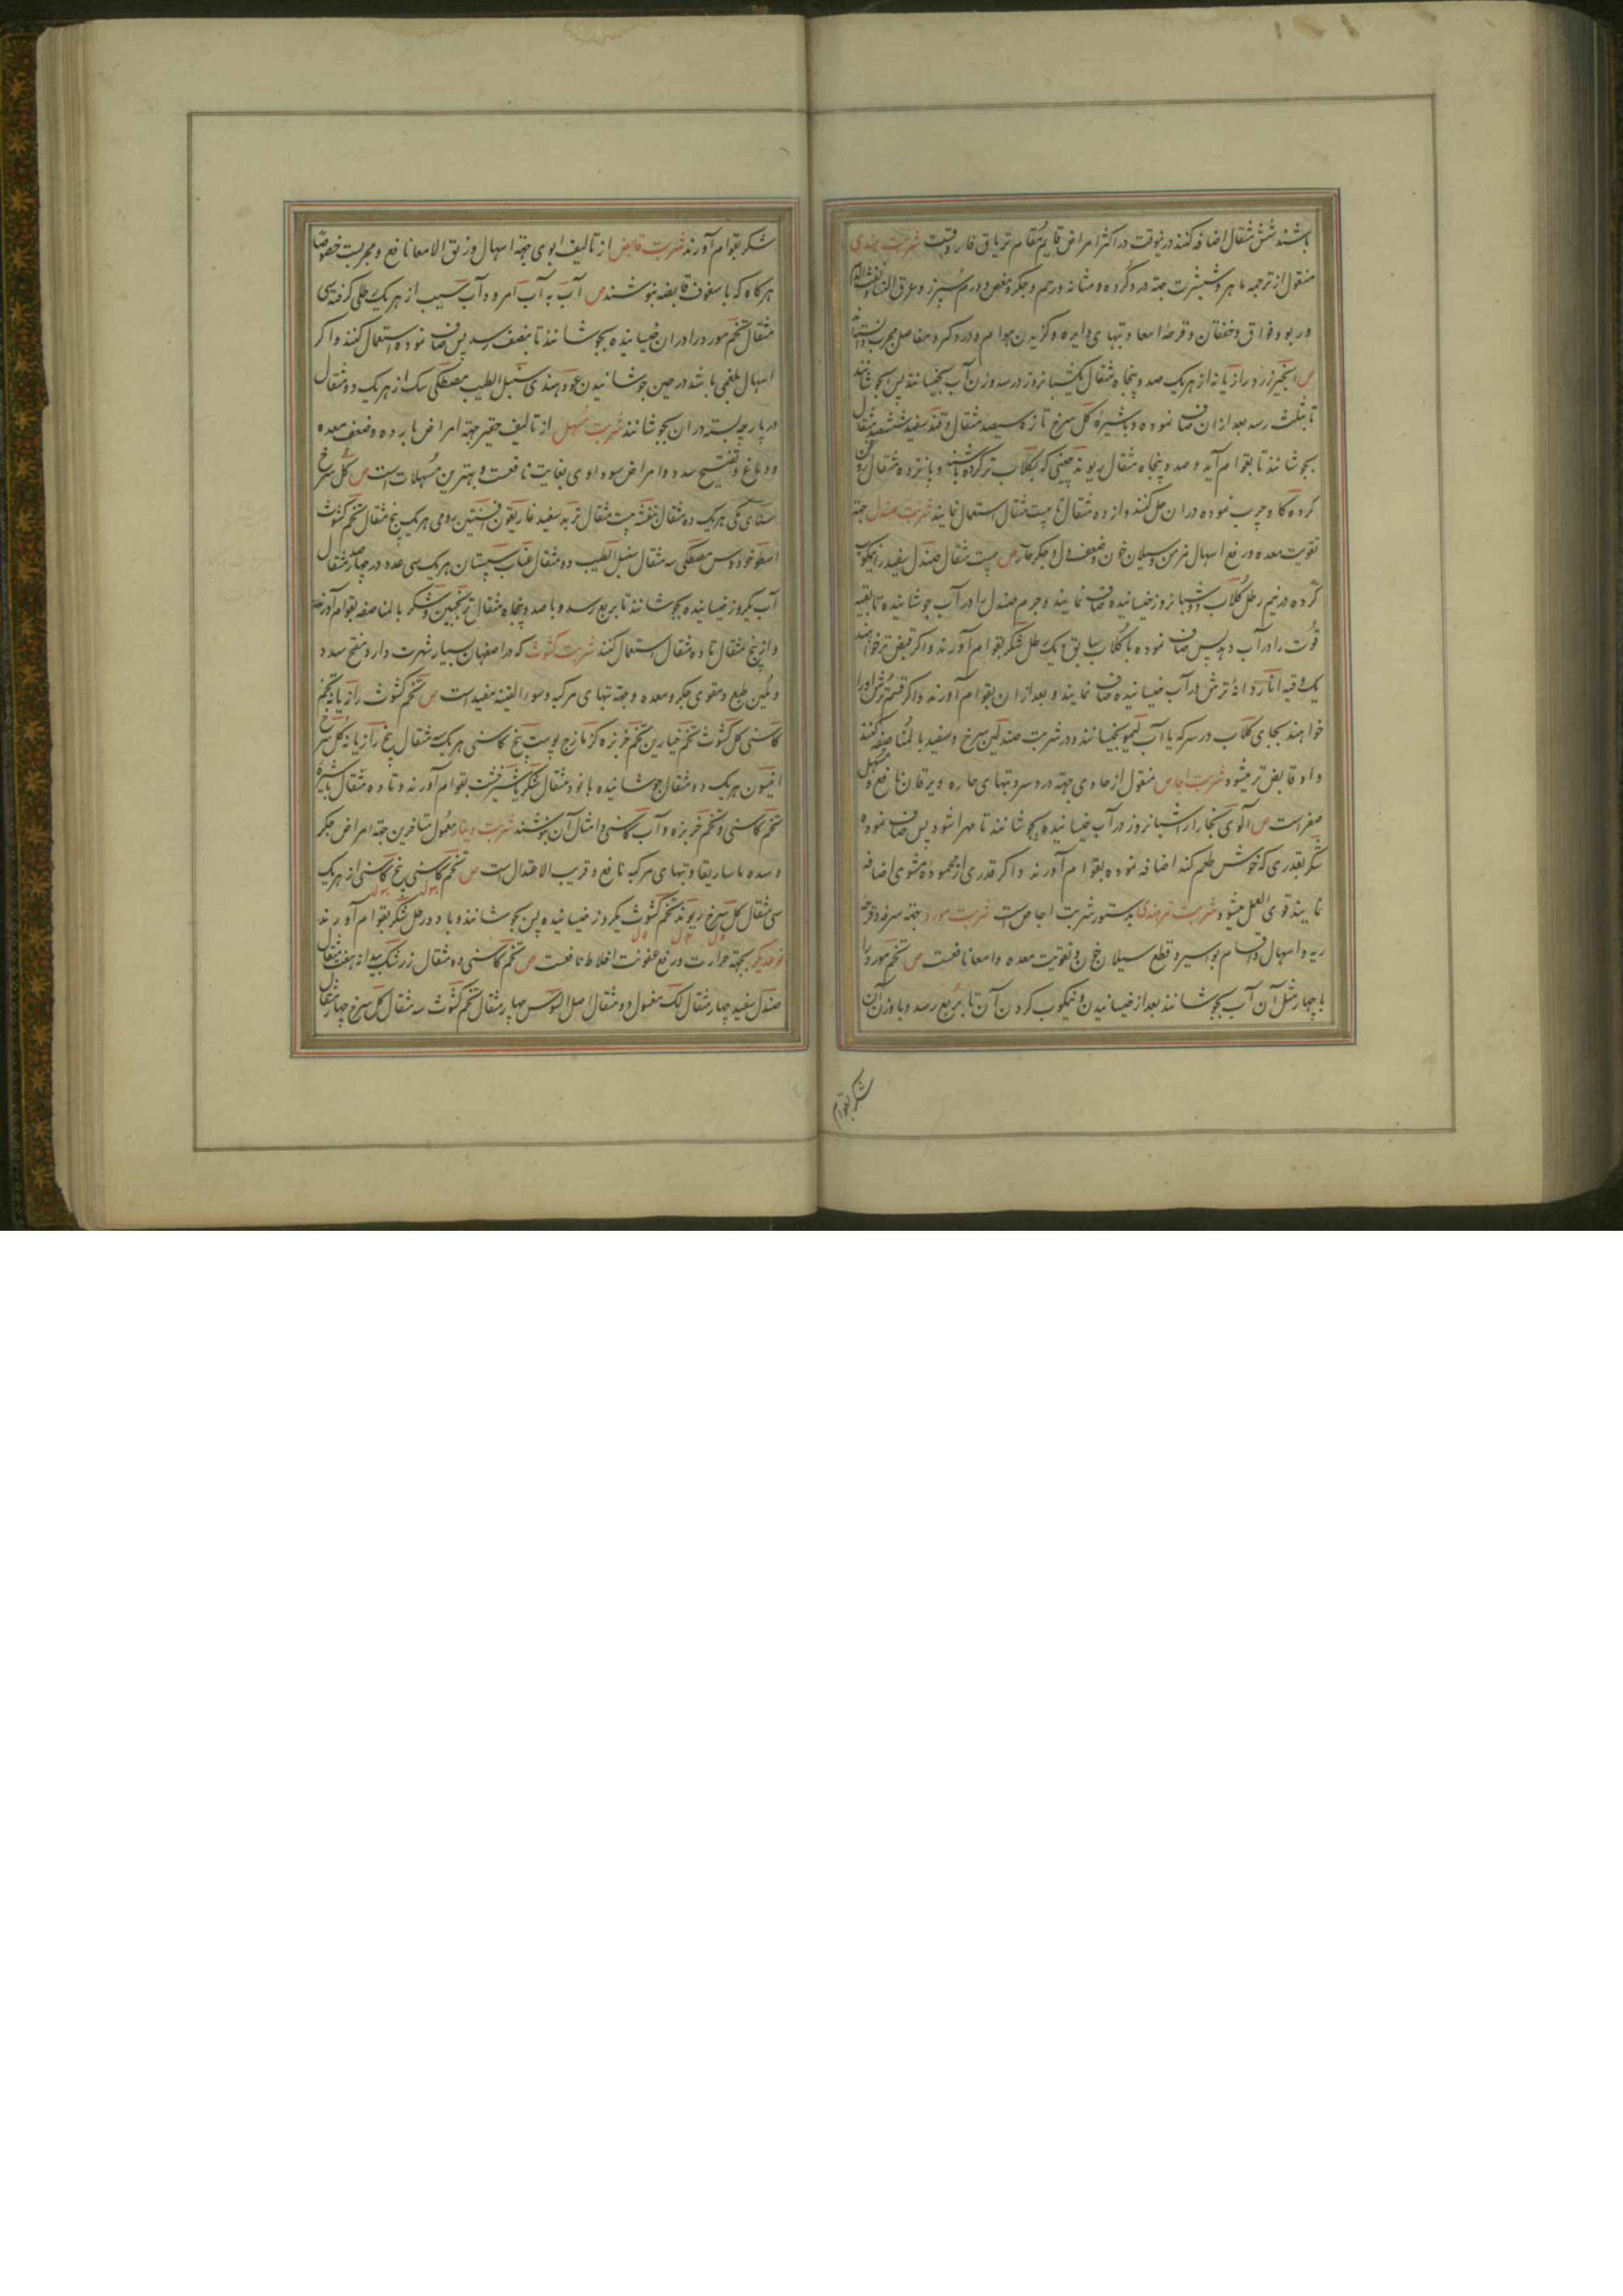 باشند شش مثقال اضافه کنند درینوقت در اکثر امراض قایم مقام تریاق فاروقست شربت هندی
منقول از ترجمه جهة درد گرده و مثانه و رحم و جگر و مغص و ورم سپرز و عرق النسا
و ربو و فواق و خفقان و قرحه امعا و تبهای دایره و گزیدن هوام و درد کمر و مفاصل مجرب
ص انجیر زرد رازیانه از هر یک صد و پنجاه مثقال یکشبانروز در سه وزن آب بخیسانند پس بجوشانند
تا بثلث رسد بعد ازان صاف نموده و با شیره گل سرخ تازه سیصد مثقال و قند سفید ششصد مثقال
بجوشانند تا بقوام آید و صد و پنجاه مثقال ریوند چینی که بگلاب تر کرده باشند و پانزده مثقال روغن
کرده گاو چرب نموده دران حل کنند و از ده مثقال تا بیست مثقال استعمال نمایند شربت صندل جهة
تقویت معده و رفع اسهال مزمن و سیلان خون و ضعف دل و جگر حار ص بیست مثقال صندل سفید را نیکوب
کرده در نیم رطل گلاب دو شبانروز خیسانیده صاف نمایند و جرم صندل را در آب جوشانیده تا بقیه
قوت را در آب دهد پس صاف نموده با گلاب سابق و یک رطل شکر بقوام آورند و اگر قبض تر خواهند
یک وقیه انار دانه ترش در آب خیسانیده صاف نمایند و بعد ازان بقوام آورند و اگر قسم ترش او را
خواهند بجای گلاب در سرکه یا آب لیمو بخیسانند و در شربت صندلین سرخ و سفید بالمناصفه کنند
و او قابض تر میشود شربت اجاص منقول از حاوی جهة درد سر و تبهای حاره و یرقان نافع و مسهل
صفراست ص آلوی بخارا را شبانروز در آب خیسانیده بجوشانند تا مهرا شود پس صاف نموده
شکر بقدری که خوش طعم کند اضافه نموده بقوام آورند و اگر قدری از محموده مشوی اضافه
نمایند قوی العمل میشود شربت تمر هندی بدستور شربت اجاص است شربت مورد جهة سرفه و قرحه
ریه و اسهال و اقسام بواسیر و قطع سیلان خون و تقویت معده و امعا نافعست ص تخم مورد را
با چهار مثل آن آب بجوشانند بعد از خیسانیدن و نیکوب کردن آن تا بربع رسد و با وزن آن
شکر بقوام
شکر بقوام آورند شربت قابض از تالیف ابوی جهة اسهال و زلق الامعا نافع و مجربست خصوصا
هرگاه که با سفوف قابضه بنوشند ص آب به آب امرود آب سیب از هر یک رطلی گرفته سی
مثقال تخم مورد را دران خیسانیده بجوشانند تا بنصف رسد پس صاف نموده استعمال کنند و اگر
اسهال بلغمی باشد در حین جوشانیدن عود هندی سنبل الطیب مصطکی سک از هر یک دو مثقال
در پارچه بسته دران بجوشانند شربت مسهل از تالیف حقیر جهة امراض بارده و ضعف معده
و دماغ و تفتیح سدد و امراض سوداوی بغایت نافعست و بهترین مسهلات است ص گل سرخ
سنای مکی هر یک ده مثقال بنفشه بیست مثقال تربد سفید غاریقون افسنتین رومی هر یک پنج مثقال تخم کثوث
اسطوخودوس مصطکی سه مثقال سنبل الطیب دو مثقال عناب سپستان هر یک سی عدد در چهارصد مثقال
آب یکروز خیسانیده بجوشانند تا بربع رسد و با صد و پنجاه مثقال ترنجبین و شکر بالمناصفه بقوام آورند
و از پنج مثقال تا ده مثقال استعمال کنند شربت کثوث که در اصفهان بسیار شهرت دارد مفتح سدد
و ملین طبع و مقوی جگر و معده و جهة تبهای مرکبه و سوء القنیه مفید است ص تخم کثوث رازیانه تخم
کاسنی گل کثوث تخم خیارین تخم خربزه گزمازج پوست بیخ کاسنی هر یک سه مثقال بیخ رازیانه گل سرخ
انیسون هر یک دو مثقال جوشانیده با نود مثقال شکر یا شیرخشت بقوام آورند و تا ده مثقال با شیره
تخم کاسنی و تخم خربزه و آب کاسنی و امثال آن بنوشند شربت دینار معمول متاخرین جهة امراض جگر
و سده ماساریقا و تبهای مرکبه نافع و قریب الاعتدال است ص تخم کاسنی بیخ کاسنی از هر یک
سی مثقال گل سرخ ریوند تخم کثوث یکروز خیسانیده پس بجوشانند و با دو رطل شکر بقوام آورند
نوعدیگر بجهة حرارت و رفع عفونت اخلاط نافعست ص تخم کاسنی ده مثقال زرشک بیدانه هفت مثقال
صندل سفید چهار مثقال لک مغسول دو مثقال اصل السوس چهار مثقال تخم کثوث سه مثقال گل سرخ چهار مثقال